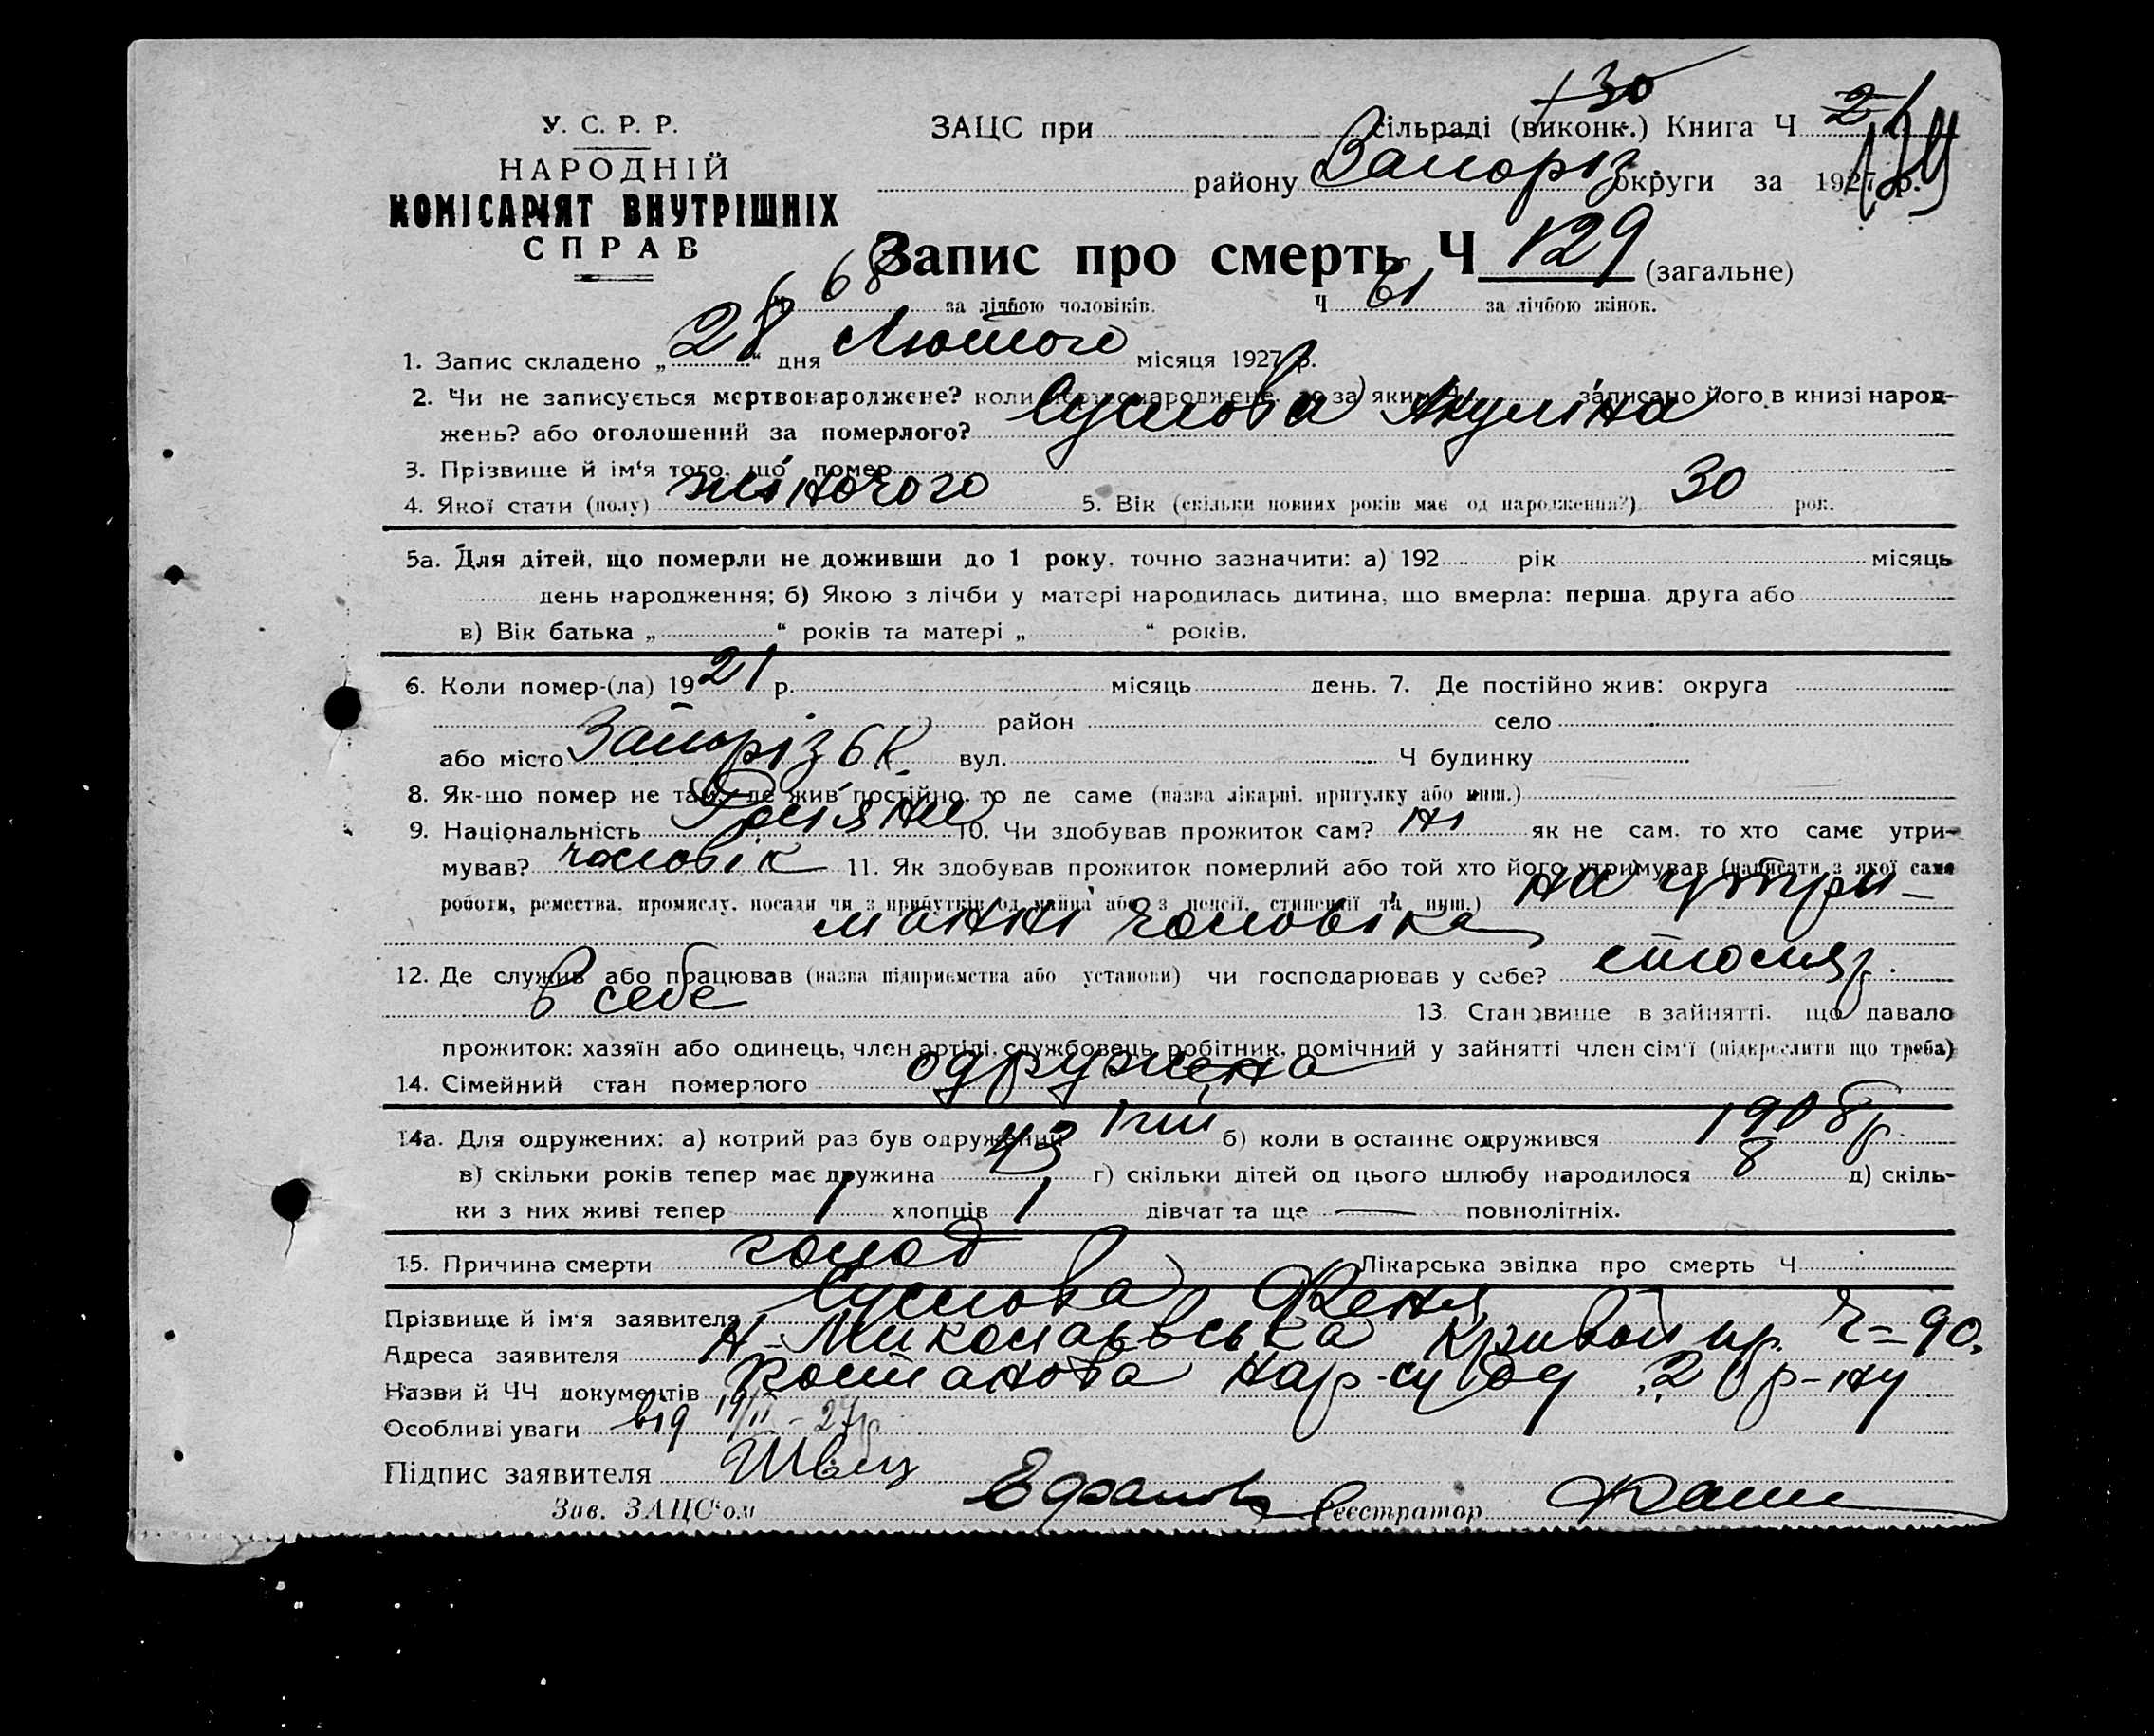 У. С. Р. Р.
НАРОДНІЙ
КОМІСАРІЯТ ВНУТРІШНІХ
СПРАВ
30
ЗАЦС при сільраді (виконк.) Книга Ч 2
району Запоріз округи за 1927 р.
Запис про смерть Ч 129 (загальне)
Ч 68 за лічбою чоловіків. Ч 61 за лічбою жінок.
1. Запис складено „28“ дня Лютого місяця 1927 р.
2. Чи не записується мертвонароджене? коли мертвонароджене, то за яким записано його в книзі народ-
жень? або оголошений за померлого?
3. Прізвище й ім‘я того, що помер Суслова Акуліна
4. Якої стати (полу) жіночого 5. Вік (скільки повних років має од народження?) 30 рок.
5а. Для дітей, що померли не доживши до 1 року, точно зазначити: а) 192 рік місяць
день народження; б) Якою з лічби у матері народилась дитина, що вмерла: перша, друга або
в) Вік батька „ “ років та матері „ “ років.
6. Коли помер-(ла) 1921 р. місяць день. 7. Де постійно жив: округа
район село
або місто Запоріз б К. вул. Ч будинку
8. Як-що помер не там, де жив постійно, то де саме (назва лікарні, притулку або инш.)
9. Національність Росіян 10. Чи здобував прожиток сам? ні як не сам, то хто саме утри-
мував? чоловік 11. Як здобував прожиток померлий або той хто його утримував (написати з якої саме
роботи, ремества, промислу, посади чи з прибутків од майна або з пенсії, стипендії та инш.) на утри-
манні чоловіка
12. Де служив або працював (назва підприємства або установи) чи господарював у себе? столяр.
в себе 13. Становище в зайнятті, що давало
прожиток: хазяїн або одинець, член артілі, службовець, робітник, помічний у зайнятті член сім‘ї (підкреслити що треба)
14. Сімейний стан померлого одружена
14а. Для одружених: а) котрий раз був одружений 1ший б) коли в останнє одружився 1908 р.
в) скільки років тепер має дружина 43 г) скільки дітей од цього шлюбу народилося 8 д) скіль-
ки з них живі тепер 1 хлопців 1 дівчат та ще — повнолітніх.
15. Причина смерти голод Лікарська звідка про смерть Ч
Прізвище й ім‘я заявителя Суслова Феня
Адреса заявителя Н-Миколаєвська Кривой пр. Ч=90.
Назви й ЧЧ документів Постанова Нар-суду 2 р-ну
Особливі уваги від 19/II-27р
Підпис заявителя Швец
Зав. ЗАЦС‘ом Реєстратор